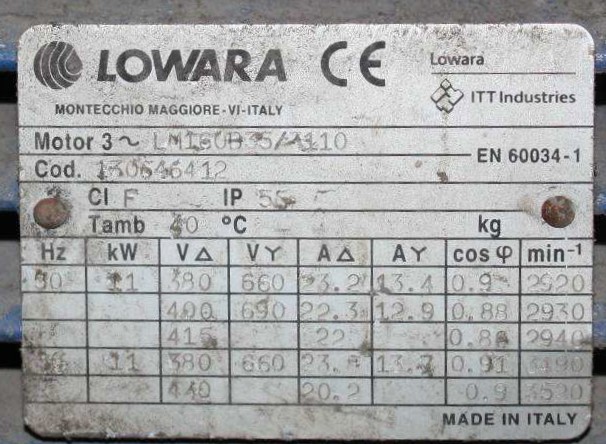 LOWARA CE
Lowara
ITT Industries
MONTECCHIO MAGGIORE-VI-ITALY
Motor 3 ~
EN 60034-1
Cod. 130646412
Cl F IP 55
Tamb 40 °C kg
Hz kW V △ V Y A △ A Y cos φ min-1
50 11 380 660 23.2 13.4 0.9 2920
400 690 22.3 12.9 0.88 2930
415 22 0.86 2940
11 380 660 13.7 0.91
440 20.2 0.9 3520
MADE IN ITALY